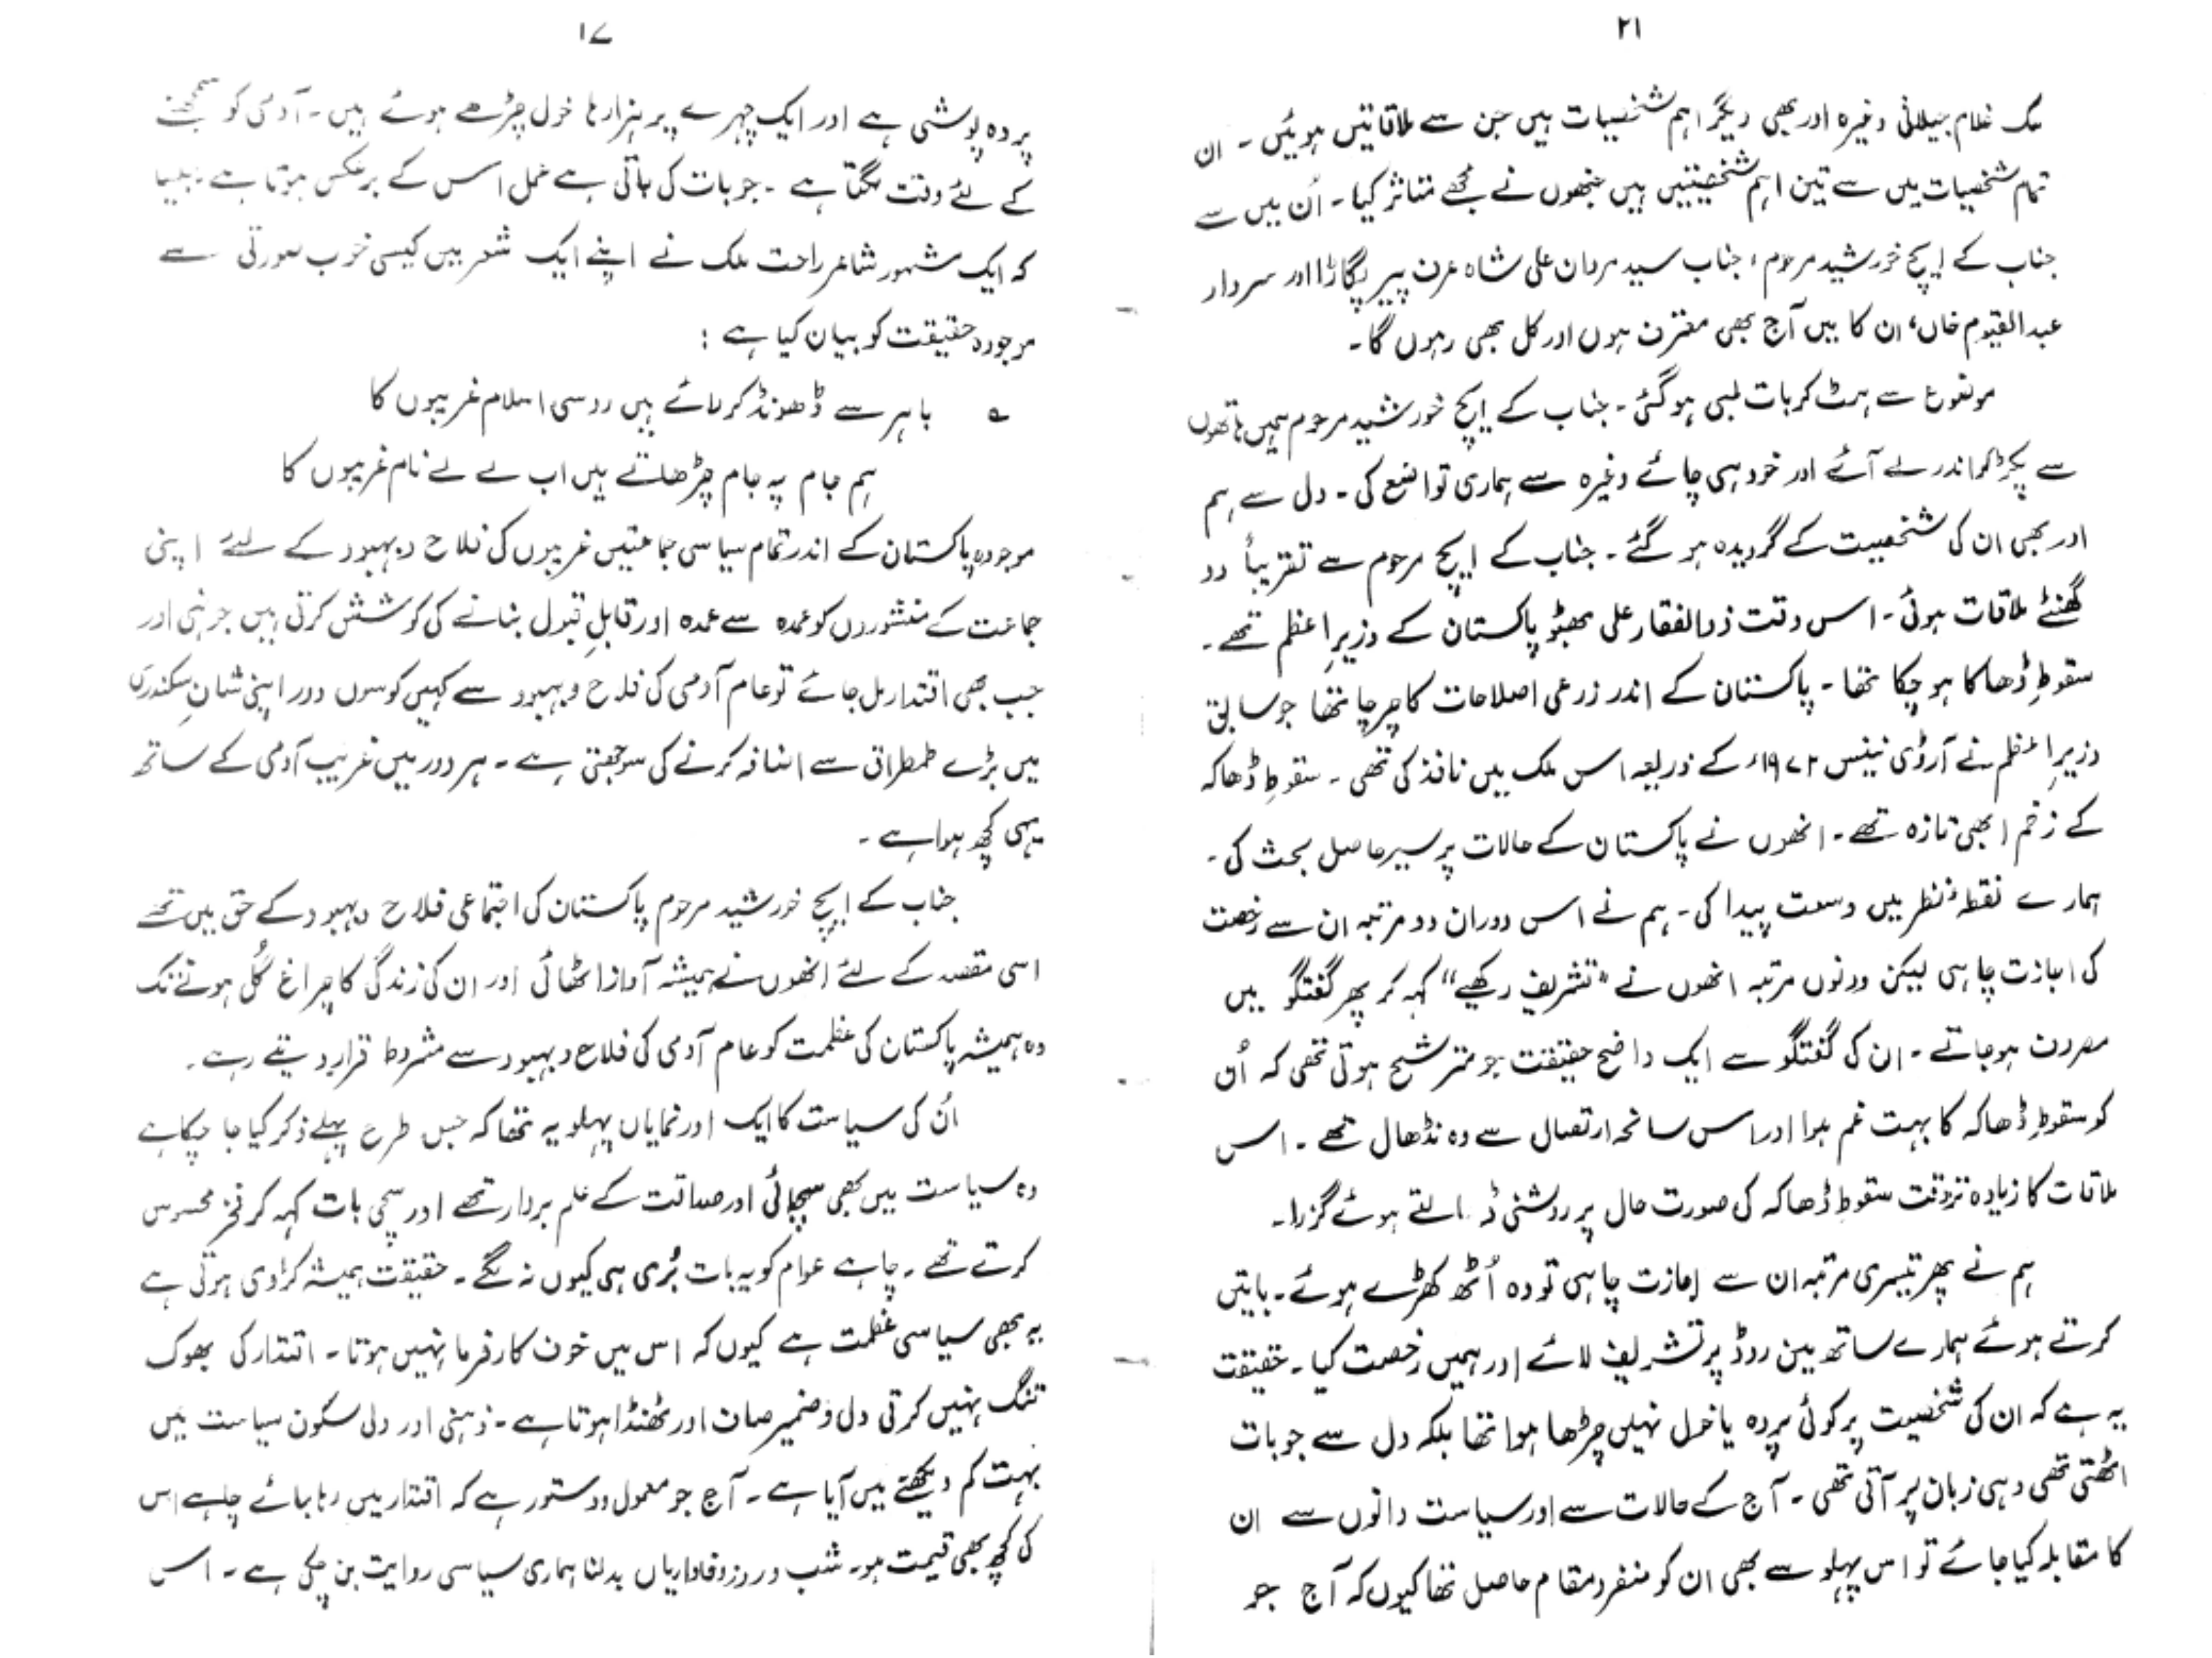 ۲۱
ملک غلام جیلانی وغیرہ اور بھی دیگر اہم شخصیات ہیں جن سے ملاقاتیں ہوئیں ۔ ان
تمام شخصیات میں سے تین اہم شخصیتیں ہیں جنھوں نے مجھے متاثر کیا ۔ اُن میں سے
جناب کے ایچ خورشید مرحوم، جناب سید مردان علی شاہ عرف پیر پگاڑا اور سردار
عبدالقیوم خاں، ان کا میں آج بھی معترف ہوں اور کل بھی رہوں گا۔
موضوع سے ہٹ کر بات لمبی ہوگئی ۔ جناب کے ایچ خورشید مرحوم ہمیں ہاتھوں
سے پکڑ کر اندر لے آئے اور خود ہی چائے وغیرہ سے ہماری تواضع کی ۔ دل سے ہم
اور بھی ان کی شخصیت کے گرویدہ ہو گئے ۔ جناب کے ایچ مرحوم سے تقریباً دو
گھنٹے ملاقات ہوئی ۔ اس وقت ذوالفقار علی بھٹو پاکستان کے وزیرِ اعظم تھے ۔
سقوطِ ڈھاکا ہو چکا تھا ۔ پاکستان کے اندر زرعی اصلاحات کا چرچا تھا جو سابق
وزیرِ اعظم نے آرڈی نینس ۱۹۷۲ء کے ذریعہ اس ملک میں نافذ کی تھی ۔ سقوطِ ڈھاکہ
کے زخم ابھی تازہ تھے ۔ انھوں نے پاکستان کے حالات پر سیر حاصل بحث کی ۔
ہمارے نقطۂ نظر میں وسعت پیدا کی ۔ ہم نے اس دوران دو مرتبہ ان سے رخصت
کی اجازت چاہی لیکن دونوں مرتبہ انھوں نے "تشریف رکھیے" کہہ کر پھر گفتگو میں
مصروف ہو جاتے ۔ ان کی گفتگو سے ایک واضح حقیقت جو مترشح ہوتی تھی کہ اُن
کو سقوطِ ڈھاکہ کا بہت غم ہوا اور اس سانحہ ارتحال سے وہ نڈھال تھے ۔ اس
ملاقات کا زیادہ تر وقت سقوطِ ڈھاکہ کی صورت حال پر روشنی ڈالتے ہوئے گزرا ۔
ہم نے پھر تیسری مرتبہ ان سے اجازت چاہی تو وہ اُٹھ کھڑے ہوئے ۔ باتیں
کرتے ہوئے ہمارے ساتھ مین روڈ پر تشریف لائے اور ہمیں رخصت کیا ۔ حقیقت
یہ ہے کہ ان کی شخصیت پر کوئی پردہ یا خول نہیں چڑھا ہوا تھا بلکہ دل سے جو بات
اٹھتی تھی وہی زبان پر آتی تھی ۔ آج کے حالات سے اور سیاست دانوں سے ان
کا مقابلہ کیا جائے تو اس پہلو سے بھی ان کو منفرد مقام حاصل تھا کیوں کہ آج جو
۱۷
پردہ پوشی ہے اور ایک چہرے پر ہزارہا خول چڑھے ہوئے ہیں ۔ آدمی کو سمجھنے
کے لئے وقت لگتا ہے ۔ جو بات کی جاتی ہے عمل اس کے برعکس ہوتا ہے جیسا
کہ ایک مشہور شاعر راحت ملک نے اپنے ایک شعر میں کیسی خوب صورتی سے
موجودہ حقیقت کو بیان کیا ہے :
؎ باہر سے ڈھونڈ کر لائے ہیں روسی اسلام غریبوں کا
ہم جام پہ جام چڑھاتے ہیں اب لے لے نام غریبوں کا
موجودہ پاکستان کے اندر تمام سیاسی جماعتیں غریبوں کی فلاح و بہبود کے لیے اپنی
جماعت کے منشوروں کو عمدہ سے عمدہ اور قابلِ قبول بنانے کی کوشش کرتی ہیں جونہی اور
جب بھی اقتدار مل جائے تو عام آدمی کی فلاح و بہبود سے کہیں کوسوں دور اپنی شانِ سکندری
میں بڑے طمطراق سے اضافہ کرنے کی سوجھتی ہے ۔ ہر دور میں غریب آدمی کے ساتھ
یہی کچھ ہوا ہے ۔
جناب کے ایچ خورشید مرحوم پاکستان کی اجتماعی فلاح و بہبود کے حق میں تھے
اسی مقصد کے لئے انھوں نے ہمیشہ آواز اٹھائی اور ان کی زندگی کا چراغ گُل ہونے تک
وہ ہمیشہ پاکستان کی عظمت کو عام آدمی کی فلاح و بہبود سے مشروط قرار دیتے رہے ۔
اُن کی سیاست کا ایک اور نمایاں پہلو یہ تھا کہ جس طرح پہلے ذکر کیا جا چکا ہے
وہ سیاست میں بھی سچائی اور صداقت کے علم بردار تھے اور سچی بات کہہ کر فخر محسوس
کرتے تھے ۔ چاہے عوام کو یہ بات بُری ہی کیوں نہ لگے ۔ حقیقت ہمیشہ کڑوی ہوتی ہے
یہ بھی سیاسی عظمت ہے کیوں کہ اس میں خوف کارفرما نہیں ہوتا ۔ اقتدار کی بھوک
تنگ نہیں کرتی دل و ضمیر صاف اور ٹھنڈا ہوتا ہے ۔ ذہنی اور دلی سکون سیاست میں
بہت کم دیکھنے میں آیا ہے ۔ آج جو معمول و دستور ہے کہ اقتدار میں رہا جائے چاہے اس
کی کچھ بھی قیمت ہو ۔ شب و روز وفاداریاں بدلنا ہماری سیاسی روایت بن چکی ہے ۔ اس